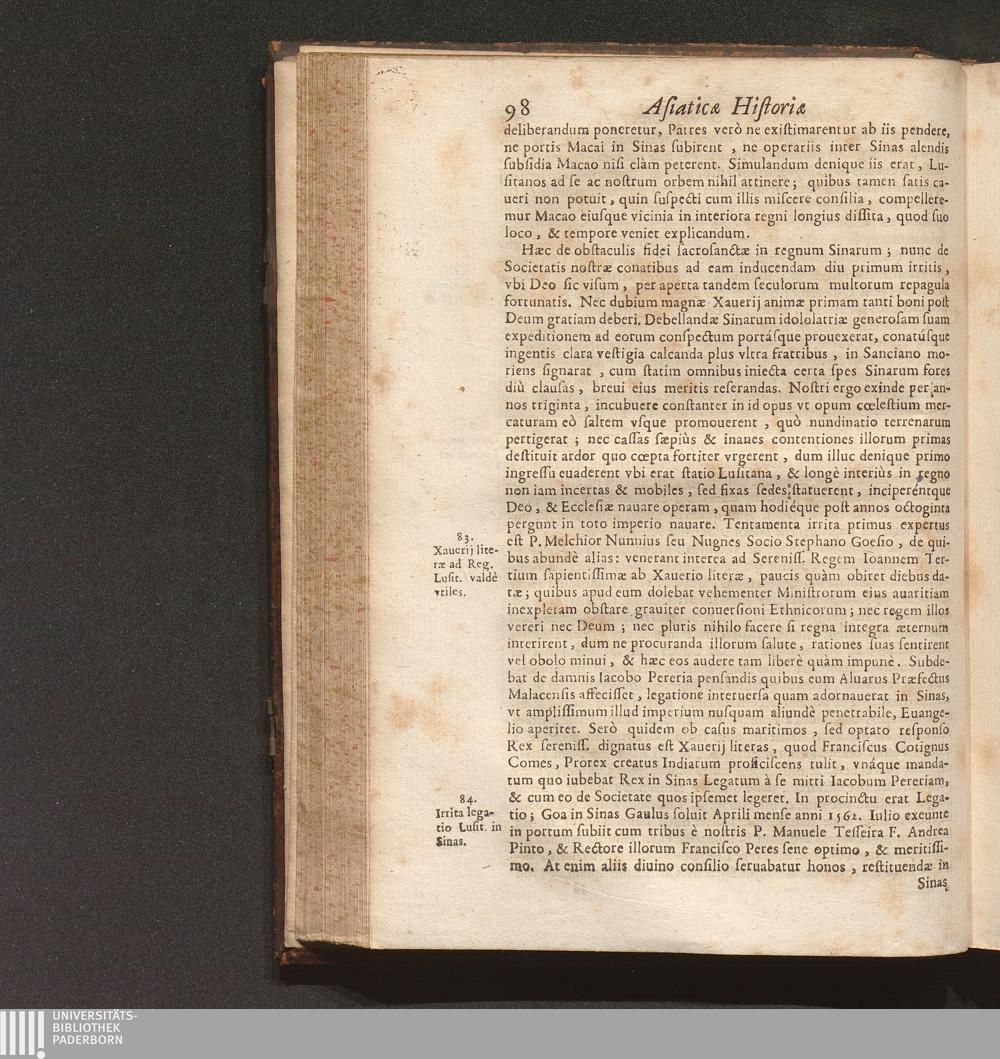 98 Aſiaticæ Hiſtoriæ
deliberandum poneretur, Patres verò ne exiſtimarentur ab iis pendere,
ne portis Macai in Sinas ſubirent , ne operariis inter Sinas alendis
ſubſidia Macao niſi clàm peterent. Simulandum denique iis erat, Lu-
ſitanos ad ſe ac noſtrum orbem nihil attinere; quibus tamen ſatis ca-
ueri non potuit, quin ſuſpecti cum illis miſcere conſilia, compellere-
mur Macao eiuſque vicinia in interiora regni longius diſſita, quod ſuo
loco, & tempore veniet explicandum.
Hæc de obſtaculis fidei ſacroſanctæ in regnum Sinarum; nunc de
Societatis noſtræ conatibus ad eam inducendam diu primum irritis,
vbi Deo ſic viſum, per aperta tandem ſeculorum multorum repagula
fortunatis. Nec dubium magnæ Xauerij animæ primam tanti boni poſt
Deum gratiam deberi. Debellandæ Sinarum idololatriæ generoſam ſuam
expeditionem ad eorum conſpectum portáſque prouexerat, conatúſque
ingentis clara veſtigia calcanda plus vltra fratribus , in Sanciano mo-
riens ſignarat , cum ſtatim omnibus iniecta certa ſpes Sinarum fores
diù clauſas, breui eius meritis reſerandas. Noſtri ergo exinde per an-
nos triginta, incubuere conſtanter in id opus vt opum cœleſtium mer-
caturam eò ſaltem vſque promouerent , quò nundinatio terrenarum
pertigerat ; nec caſſas ſæpiùs & inanes contentiones illorum primas
deſtituit ardor quo cœpta fortiter vrgerent , dum illuc denique primo
ingreſſu euaderent vbi erat ſtatio Luſitana, & longè interiùs in regno
non iam incertas & mobiles, ſed fixas ſedes ſtatuerent, inciperéntque
Deo, & Eccleſiæ nauare operam, quam hodiéque poſt annos octoginta
pergunt in toto imperio nauare. Tentamenta irrita primus expertus
83.
Xauerij lite-
ræ ad Reg.
Luſit. valdè
vtiles.
eſt P. Melchior Nunnius ſeu Nugnes Socio Stephano Goeſio, de qui-
bus abundè alias: venerant interea ad Sereniſſ. Regem Ioannem Ter-
tium ſapientiſſimæ ab Xauerio literæ, paucis quàm obiret diebus da-
tæ; quibus apud eum dolebat vehementer Miniſtrorum eius auaritiam
inexpletam obſtare grauiter conuerſioni Ethnicorum; nec regem illos
vereri nec Deum ; nec pluris nihilo facere ſi regna integra æternum
interirent, dum ne procuranda illorum ſalute, rationes ſuas ſentirent
vel obolo minui, & hæc eos audere tam liberè quàm impunè. Subde-
bat de damnis Iacobo Pereria penſandis quibus eum Aluarus Præfectus
Malacenſis affeciſſet, legatione interuerſa quam adornauerat in Sinas,
vt ampliſſimum illud imperium nuſquam aliundè penetrabile, Euange-
lio aperiret. Serò quidem ob caſus maritimos , ſed optato reſponſo
Rex ſereniſſ. dignatus eſt Xauerij literas, quod Franciſcus Cotignus
Comes, Prorex creatus Indiarum proficiſcens tulit, vnáque manda-
tum quo iubebat Rex in Sinas Legatum à ſe mitti Iacobum Pereriam,
84.
Irrita lega-
tio Luſit. in
Sinas.
& cum eo de Societate quos ipſemet legeret. In procinctu erat Lega-
tio; Goa in Sinas Gaulus ſoluit Aprili menſe anni 1562. Iulio exeunte
in portum ſubiit cum tribus è noſtris P. Manuele Teſſeira F. Andrea
Pinto, & Rectore illorum Franciſco Peres ſene optimo, & meritiſſi-
mo. At enim aliis diuino conſilio ſeruabatur honos, reſtituendæ in
Sinas
UNIVERSITÄTS-
BIBLIOTHEK
PADERBORN